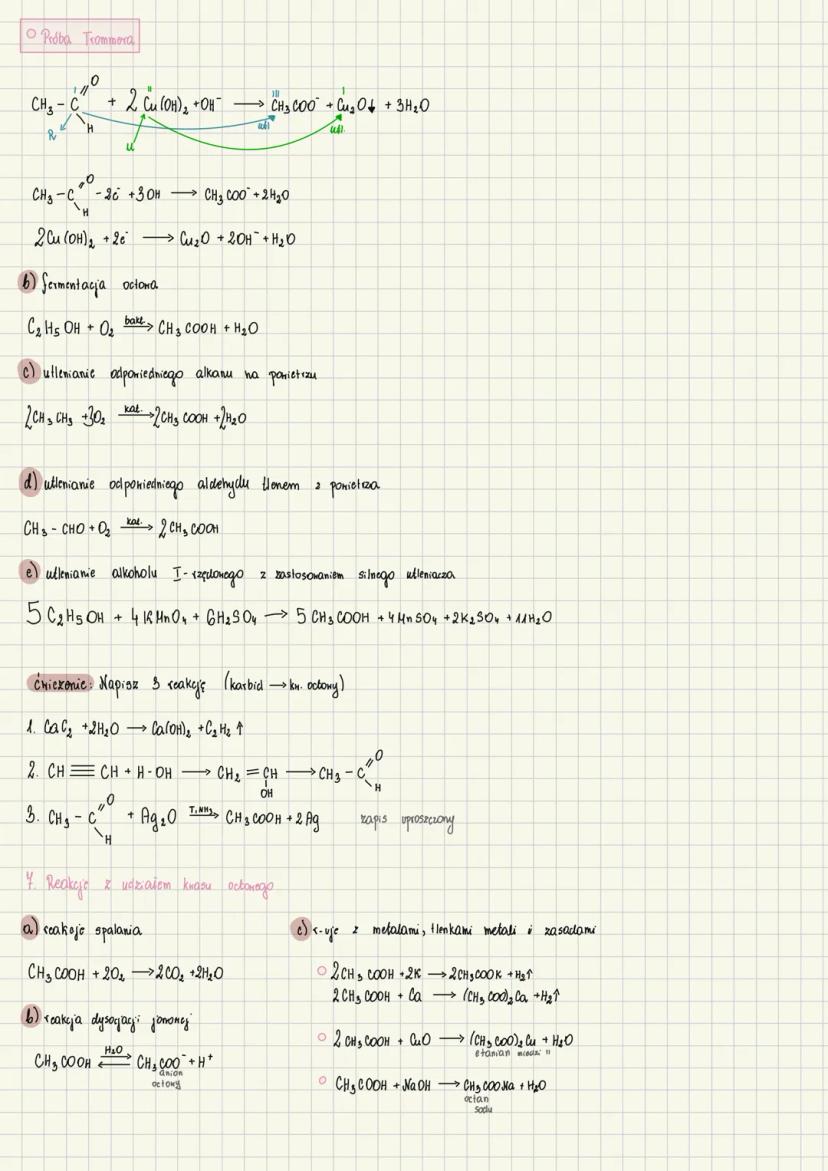 Próba Trommera
CH₃ – C =O H + 2 Cu(OH)₂ + OH⁻ → CH₃COO⁻ + Cu₂O↓ + 3H₂O
I II III I
R utl. utl.
U
CH₃ – C =O H - 2e⁻ + 3OH → CH₃COO⁻ + 2H₂O
2Cu(OH)₂ + 2e⁻ → Cu₂O + 2OH⁻ + H₂O
b) fermentacja octowa
C₂H₅OH + O₂ bakt.→ CH₃COOH + H₂O
c) utlenianie odpowiedniego alkanu na powietrzu
2CH₃CH₃ + 3O₂ kat.→ 2CH₃COOH + 2H₂O
d) utlenianie odpowiedniego aldehydu tlenem z powietrza
CH₃ – CHO + O₂ kat.→ 2CH₃COOH
e) utlenianie alkoholu I-rzędowego z zastosowaniem silnego utleniacza
5 C₂H₅OH + 4KMnO₄ + 6H₂SO₄ → 5 CH₃COOH + 4MnSO₄ + 2K₂SO₄ + 11H₂O
Ćwiczenie: Napisz 3 reakcje (karbid → kw. octowy)
1. CaC₂ + 2H₂O → Ca(OH)₂ + C₂H₂ ↑
2. CH ≡ CH + H-OH → CH₂ = CH OH → CH₃ – C =O H
3. CH₃ – C =O H + Ag₂O T, NH₃→ CH₃COOH + 2Ag zapis uproszczony
7. Reakcje z udziałem kwasu octowego
a) reakcje spalania
CH₃COOH + 2O₂ → 2CO₂ + 2H₂O
b) reakcja dysocjacji jonowej
CH₃COOH H₂O⇄ CH₃COO⁻ + H⁺
anion
octowy
c) r-cje z metalami, tlenkami metali i zasadami
2CH₃COOH + 2K → 2CH₃COOK + H₂↑
2CH₃COOH + Ca → (CH₃COO)₂Ca + H₂↑
2CH₃COOH + CuO → (CH₃COO)₂Cu + H₂O
etanian miedzi II
CH₃COOH + NaOH → CH₃COONa + H₂O
octan
sodu